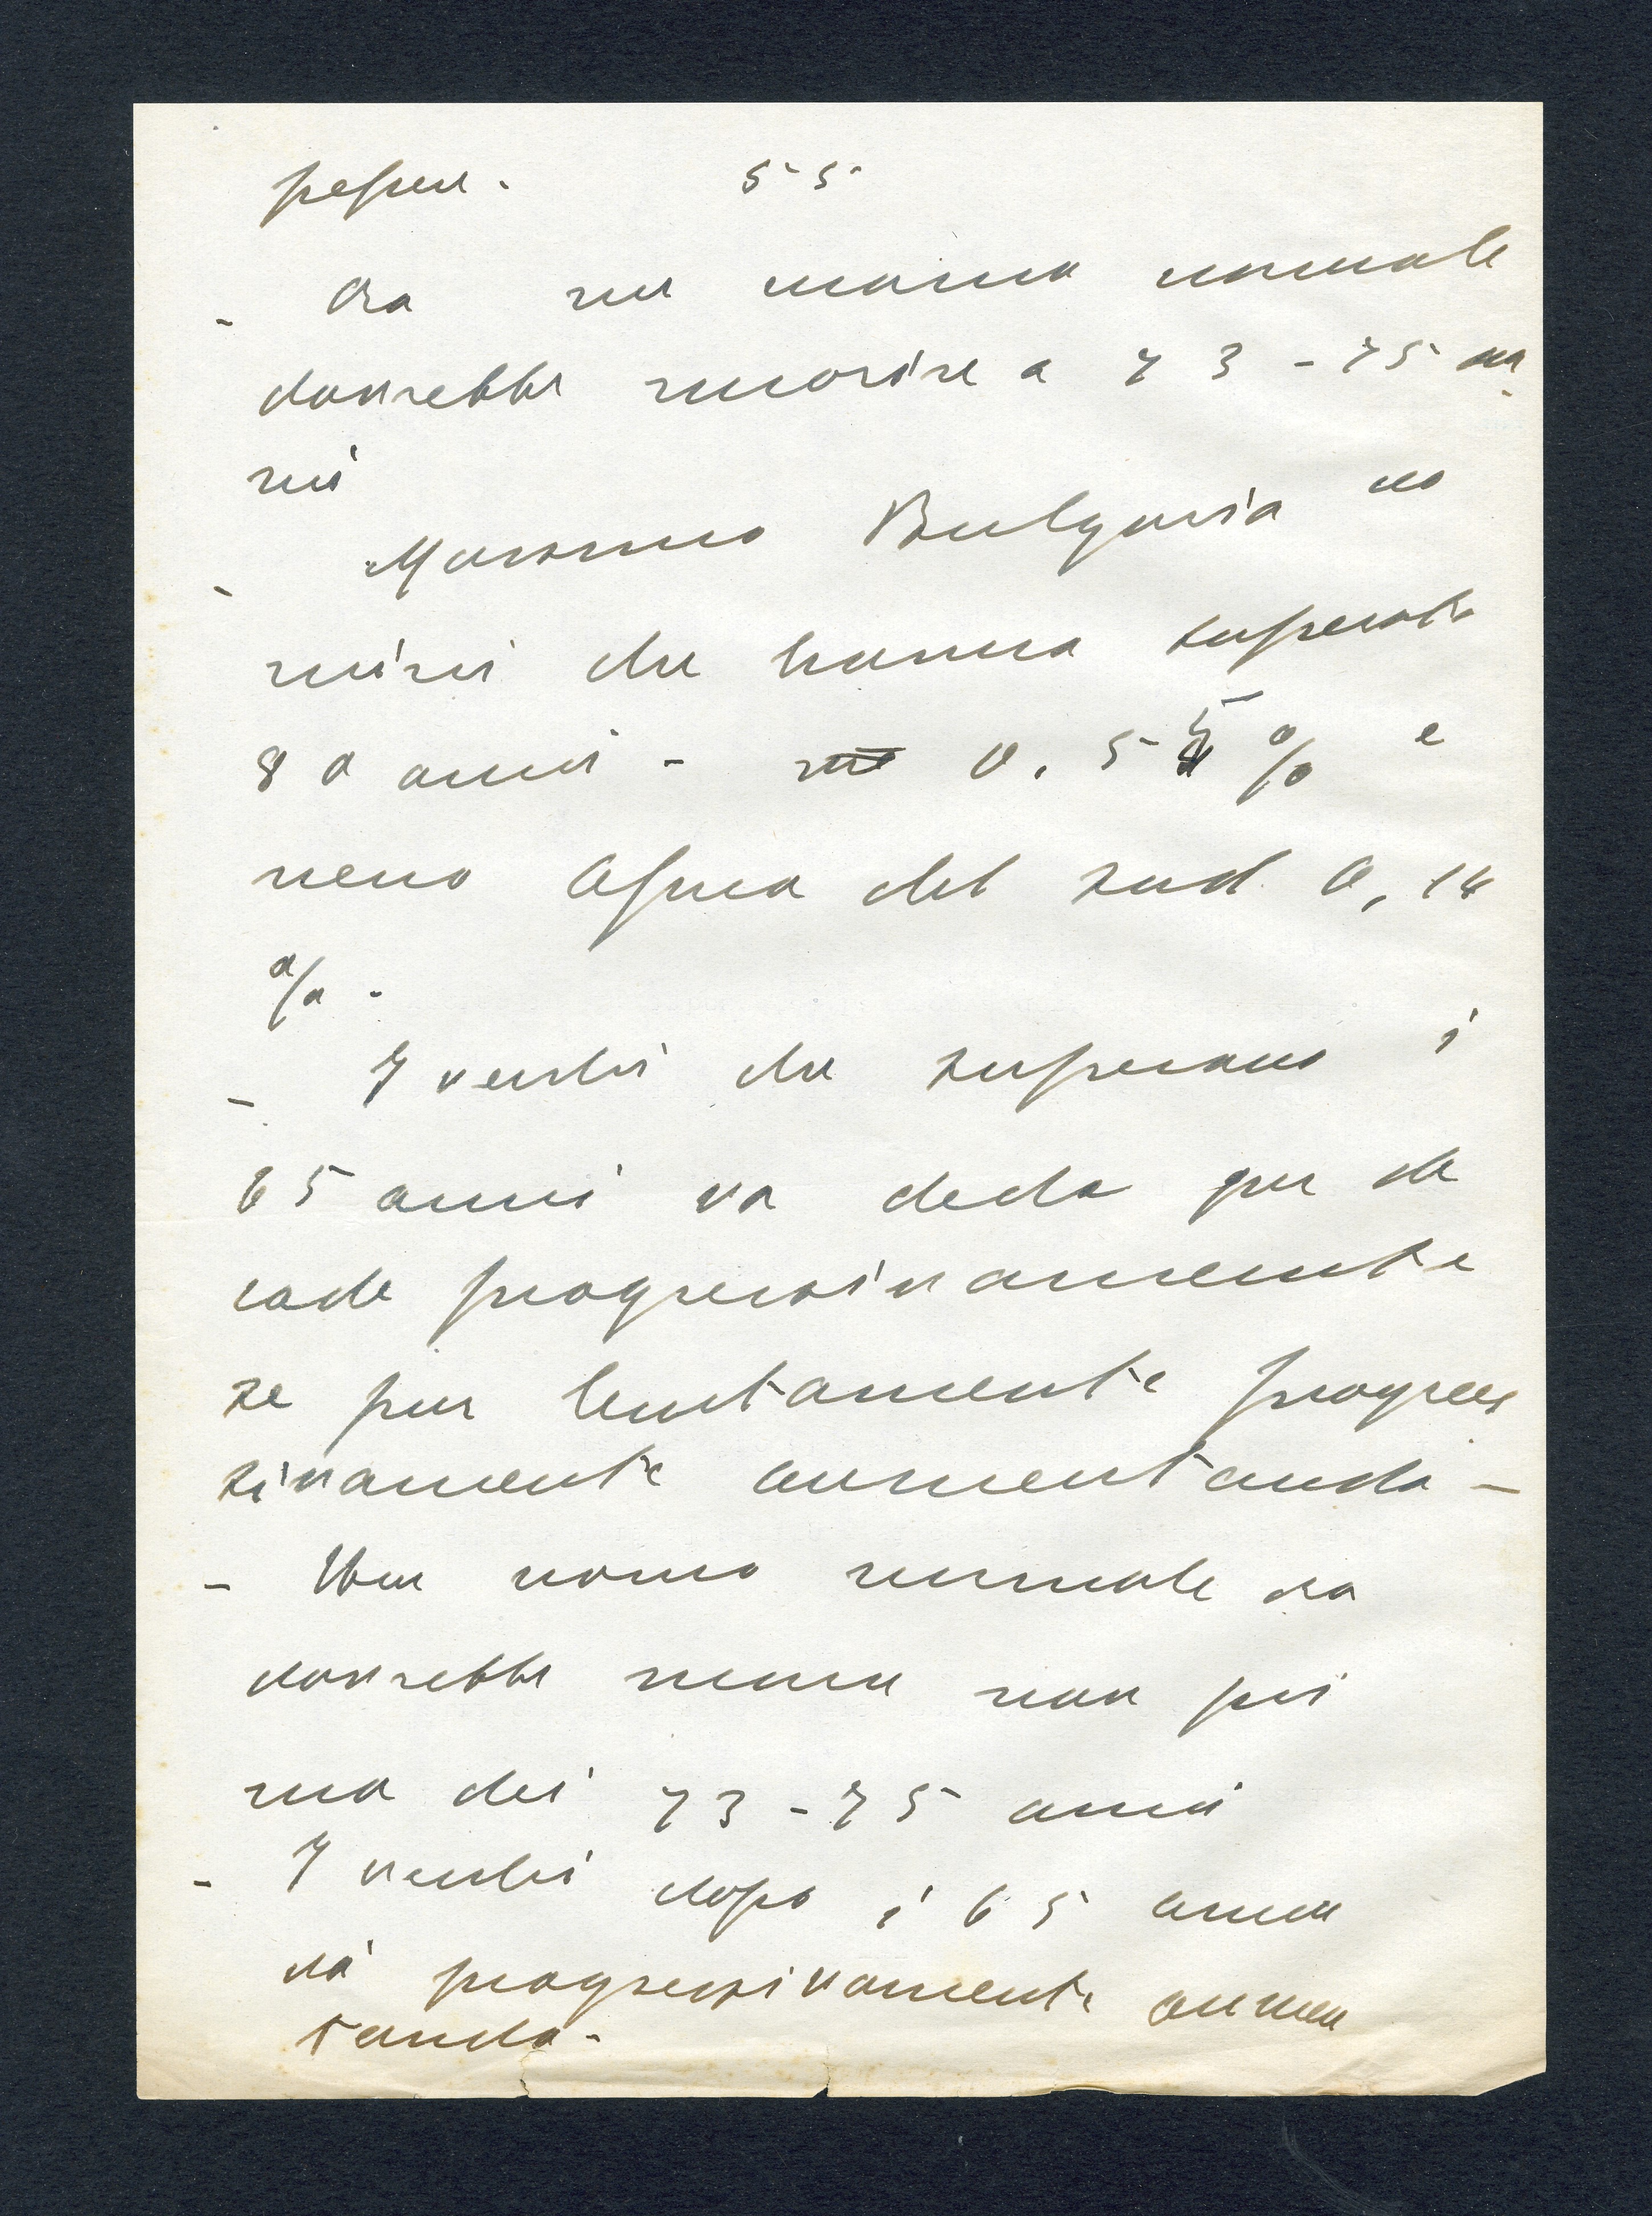 55
- Ora un uomo normale
dovrebbe morire a 73 - 75 an
ni
- Massimo Bulgaria uo
mini che hanno superato
80 anni - 0.55 % e
meno Africa del sud 0,14
% -
- I vecchi che superano i
65 anni va da per de
cade progressivamente
se pur lentamente progres
sivamente aumentando -
- Un uomo normale ora
dovrebbe morire non pri
ma dei 73 - 75 anni
- I vecchi dopo i 65 anni
va progressivamente aumen
tando -